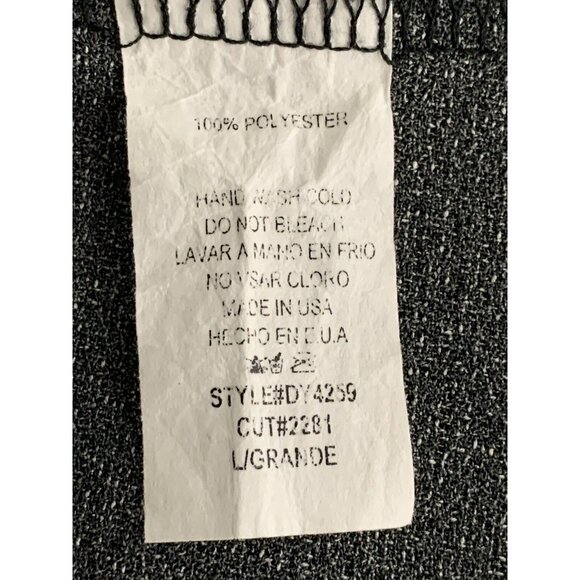 100% POLYESTER
HAND WASH COLD
DO NOT BLEACH
LAVAR A MANO EN FRIO
NO VSAR CLORO
MADE IN USA
HECPO EN E.U.A
STYLE#DY4259
CUT#2281
L/GRANDE